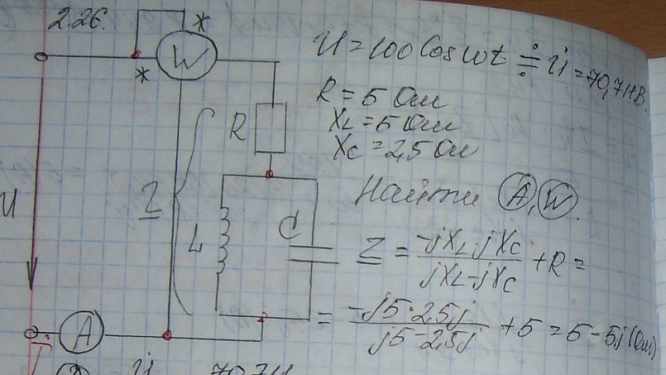 2.26.
* W
*
U = 100 Cos ωt ≑ U̇ = 70,7 Н В.
R = 5 Ом
XL = 5 Ом
Xc = 2,5 Ом
R
Найти (A), (W).
Z
U
L
C
Z = -jXL·jXc / jXL-jXc + R =
= -j5·2,5j / j5-2,5j + 5 = 5 - 5j (Ом)
A